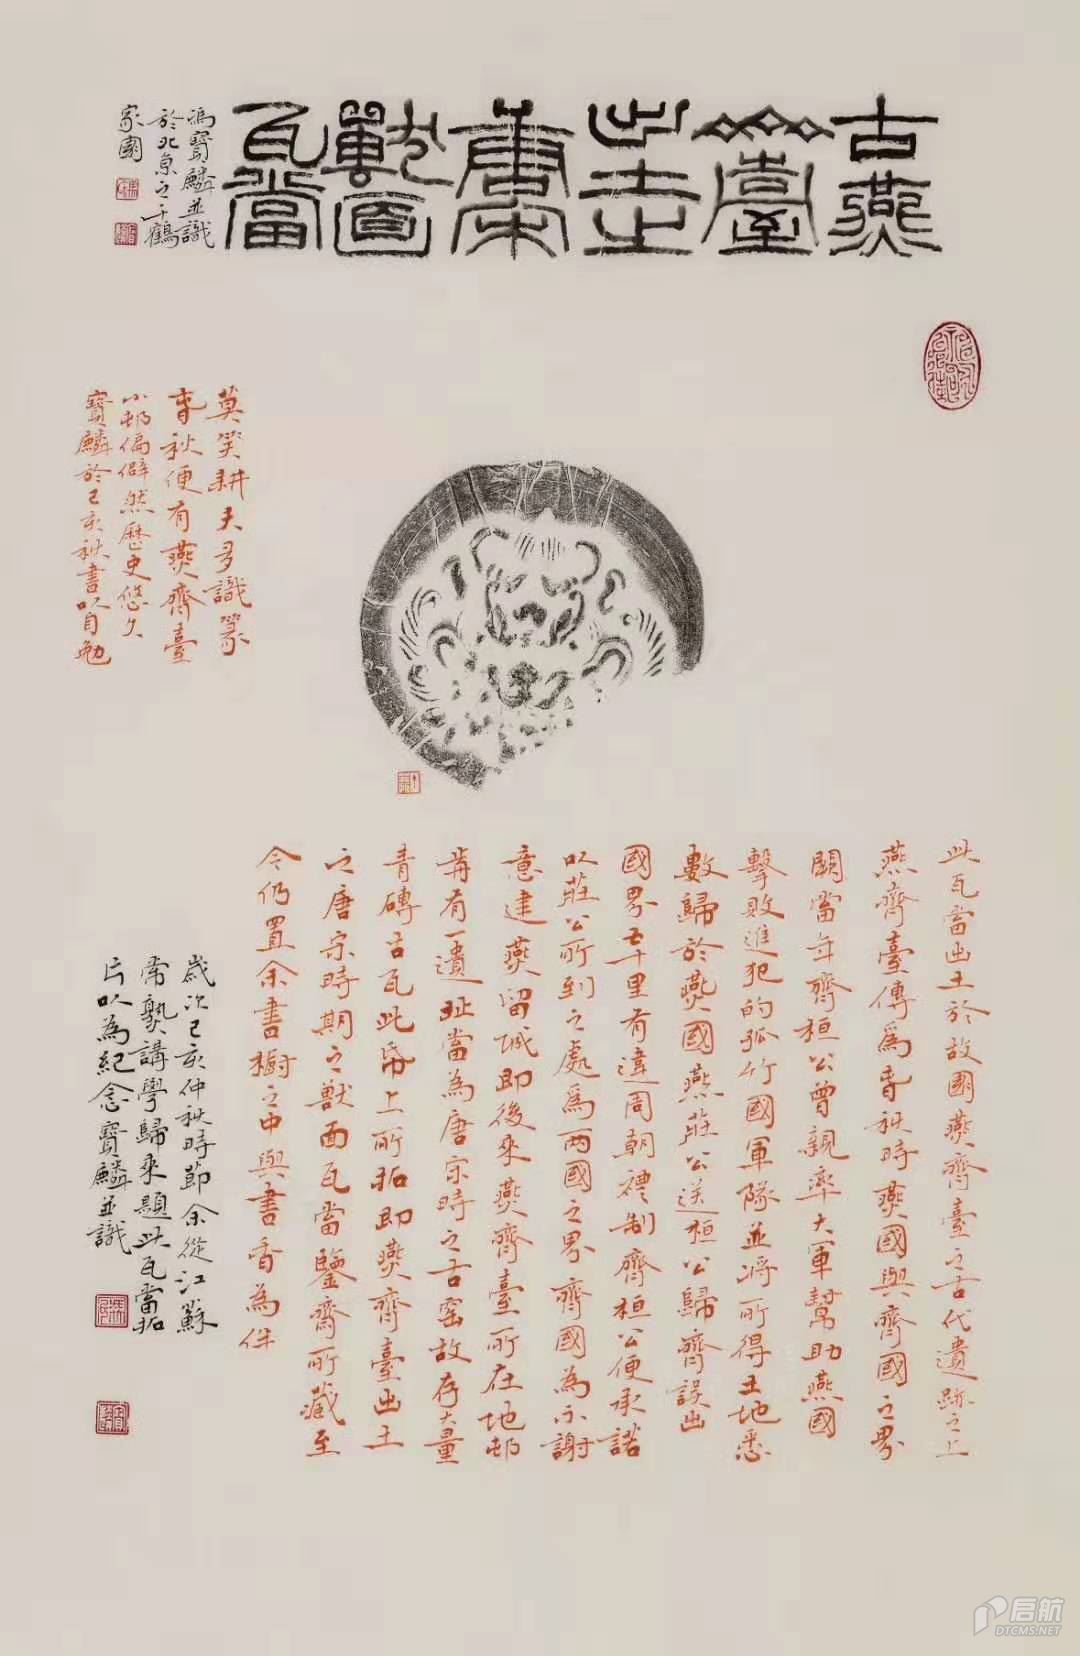 古燕
齊臺
出土
唐宋
獸面
瓦當
馮寶麟並識
於北京之千鶴
家園
莫笑耕夫多識篆
春秋便有燕齊臺
小邨偏僻然歷史悠久
寶麟於己亥秋書以自勉
此瓦當出土於故國燕齊臺之古代遺跡之上
燕齊臺傳為春秋時燕國與齊國之界
關當年齊桓公曾親率大軍幫助燕國
擊敗進犯的孤竹國軍隊並將所得土地悉
數歸於燕國燕莊公送桓公歸齊誤出
國界五十里有違周朝禮制齊桓公便承諾
以莊公所到之處為兩國之界齊國為示謝
意建燕留城即後來燕齊臺所在地邨
前有一遺址當為唐宋時之古窰故存大量
青磚古瓦此帋上所拓即燕齊臺出土
之唐宋時期之獸面瓦當鑒齋所藏至
今仍置余書櫥之中與書香為伴
歲次己亥仲秋時節余從江蘇
常熟講學歸來題此瓦當拓
片以為紀念寶麟並識
启航
DTCMS.NET